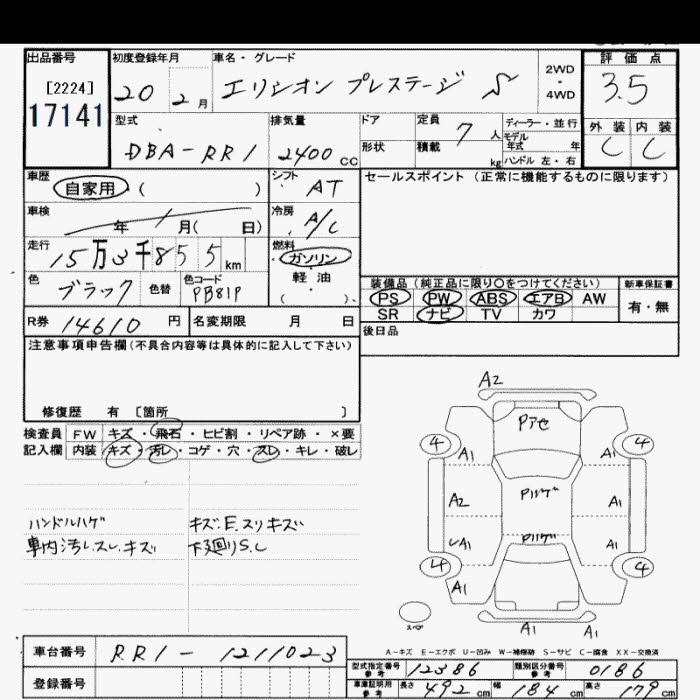 出品番号 初度登録年月 車名・グレード 評価点
[2224] 20 2月 エリシオン プレステージ S 2WD・4WD 3.5
17141
型式 排気量 ドア 定員 7人 ディーラー・並行 外装 内装
DBA-RR1 2400CC 形状 積載 kg モデル年式 年 C C
ハンドル 左・右
車歴 自家用 ( ) シフト AT セールスポイント (正常に機能するものに限ります)
車検 年 月( 日) 冷房 A/C
走行 15万3千855km 燃料 ガソリン
軽油
( )
色 ブラック 色替 色コード PB81P
装備品(純正品に限り○をつけてください) 新車保証書
PS PW ABS エアB AW 有・無
SR ナビ TV カワ
R券 14610円 名変期限 月 日 後日品
注意事項申告欄(不具合内容等は具体的に記入して下さい)
修復歴 有 [箇所 ]
検査員 FW キズ・飛石・ヒビ割・リペア跡・×要
記入欄 内装 キズ・汚レ・コゲ・穴・スレ・キレ・破レ
ハンドルハゲ キズ.E.スリキズ
車内汚レ.スレ.キズ 下廻りS.C
A2
Pアセ
4 A1 A1 4
A2 Pハゲ A1
A1 Pハゲ A1
4 A1 4
A1 A1
スペア
A-キズ E-エクボ U-凹み W-補修跡 S-サビ C-腐食 XX-交換済
車台番号 RR1-1211023
登録番号
型式指定番号 参考 12386 類別区分番号 参考 0186
車庫証明用 参考 長さ 492cm 幅 184cm 高さ 179cm